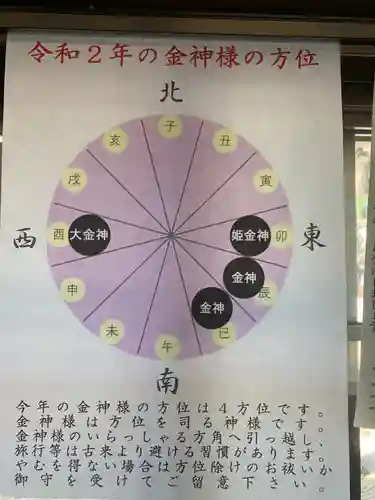 令和２年の金神様の方位
北
子
亥
丑
戌
寅
西
酉
大金神
姫金神
卯
東
申
金神
辰
金神
未
午
巳
南
今年の金神様の方位は４方位です。
金神様は方位を司る神様です。
金神様のいらっしゃる方角へ引っ越し、
旅行等は古来より避ける習慣があります。
やむを得ない場合は方位除けのお祓いか
御守を受けてご留意下さい。